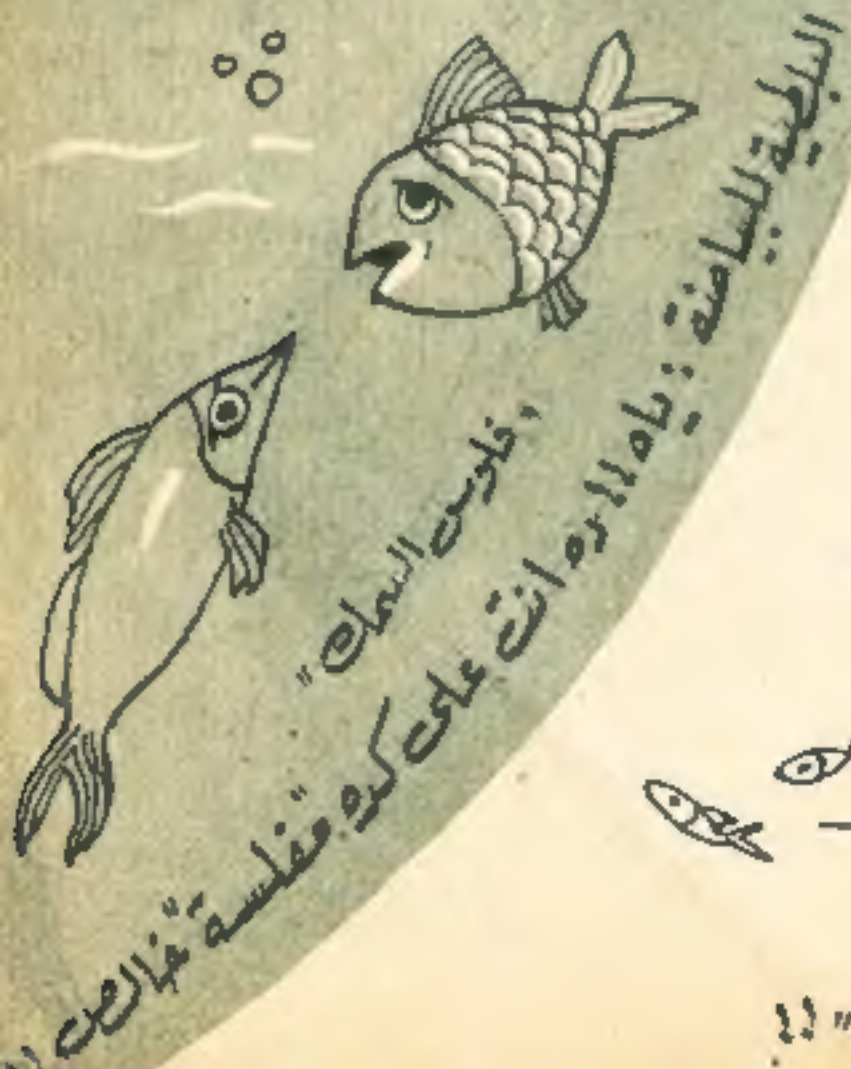 "فلوس السمك"
البلطية للبياضة : ياه !! ده انت على كده "مفلسة" خالص !!
" !!